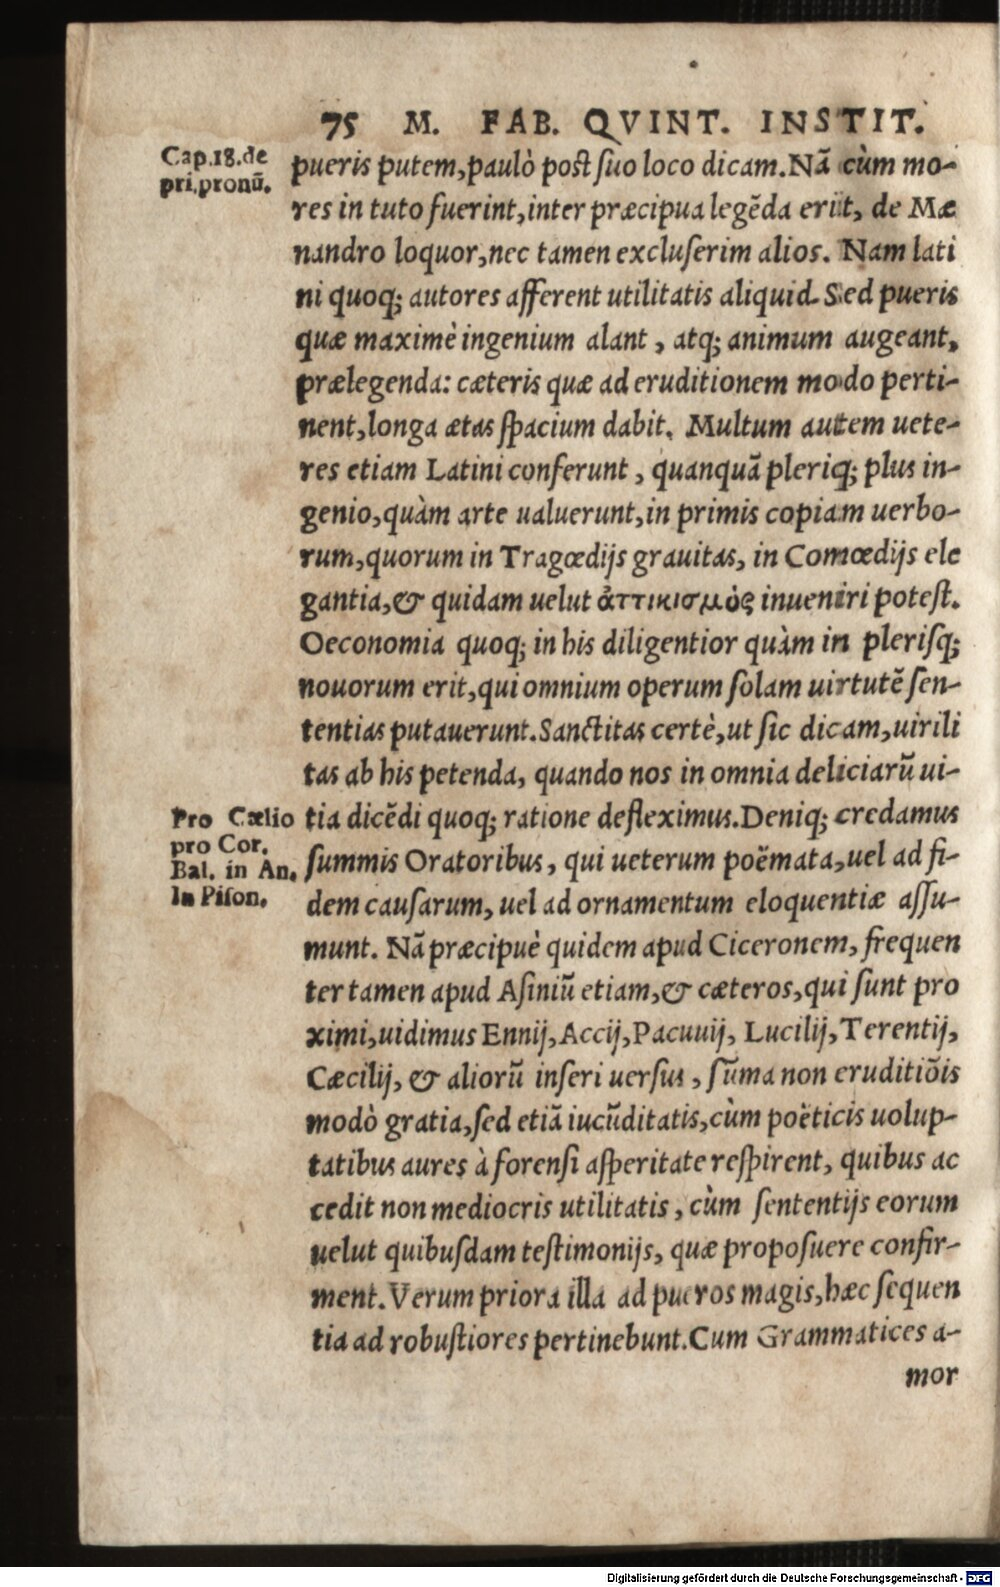 75 M. FAB. QVINT. INSTIT.
Cap.18.de
pri.pronũ.
pueris putem,paulò post suo loco dicam.Nã cùm mo-
res in tuto fuerint,inter præcipua legẽda erit, de Mæ
nandro loquor,nec tamen excluserim alios. Nam lati
ni quoq; autores afferent utilitatis aliquid. Sed pueris
quæ maximè ingenium alant, atq; animum augeant,
prælegenda: cæteris quæ ad eruditionem modo perti-
nent,longa ætas spacium dabit. Multum autem uete-
res etiam Latini conferunt, quanquã pleriq; plus in-
genio,quàm arte ualuerunt,in primis copiam uerbo-
rum,quorum in Tragœdijs grauitas, in Comœdijs ele
gantia,& quidam uelut ἀττικισμὸς inueniri potest.
Oeconomia quoq; in his diligentior quàm in plerisq;
nouorum erit,qui omnium operum solam uirtutẽ sen-
tentias putauerunt.Sanctitas certè,ut sic dicam,uirili
tas ab his petenda, quando nos in omnia deliciarũ ui-
tia dicẽdi quoq; ratione defleximus.Deniq; credamus
summis Oratoribus, qui ueterum poëmata,uel ad fi-
dem causarum, uel ad ornamentum eloquentiæ assu-
munt. Nã præcipuè quidem apud Ciceronem, frequen
ter tamen apud Asiniũ etiam,& cæteros,qui sunt pro
ximi,uidimus Ennij,Accij,Pacuuij, Lucilij,Terentij,
Cæcilij, & aliorũ inseri uersus, sũma non eruditiõis
modò gratia,sed etiã iucũditatis,cùm poëticis uolup-
tatibus aures à forensi asperitate respirent, quibus ac
cedit non mediocris utilitatis, cùm sententijs eorum
uelut quibusdam testimonijs, quæ proposuere confir-
ment. Verum priora illa ad pueros magis,hæc sequen
tia ad robustiores pertinebunt.Cum Grammatices a-
mor
Pro Cælio
pro Cor.
Bal. in An.
In Pison.
Digitalisierung gefördert durch die Deutsche Forschungsgemeinschaft - DFG